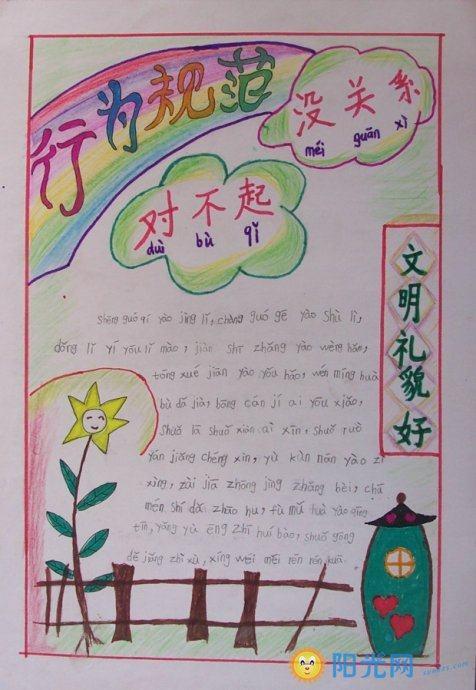 行为规范
没关系
méi guān xì
对不起
duì bù qǐ
文明礼貌好
shēng guó qí yào jìng lǐ, chàng guó gē yào shù lì,
dǒng lǐ yí yǒu lǐ mào, jiàn shī zhǎng yào wèn hǎo,
tóng xué jiān yào yǒu hǎo, wén míng huà
bù dǎ jià, bāng cán jí ai yòu xiǎo,
xīn, shuō ruò
yán jiǎng chéng xìn, yù kùn nán yào zì
xìng, zài jiā zhōng jìng zhǎng bèi, chū
mén shì dǎ zhāo hu, fù mǔ huà yào qīng
tīn, yǎng yù ēng zhī huí bào,
dé jiǎng zhì xù, xíng wéi měi rén rén kuā.
阳光网